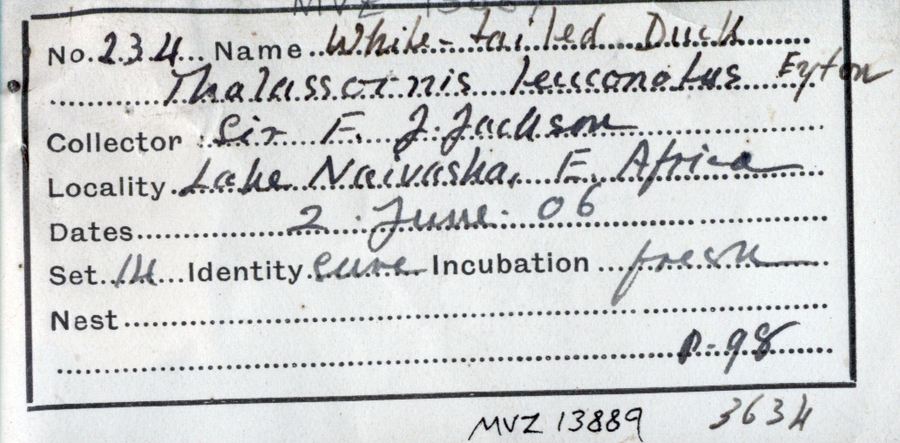 No. 234 Name White-tailed Duck
Thalassornis leuconotus Eyton
Collector Sir F. J. Jackson
Locality Lake Naivasha, E. Africa
Dates 2 June 06
Set 14 Identity sure Incubation fresh
Nest
P-98
MVZ 13889 3634